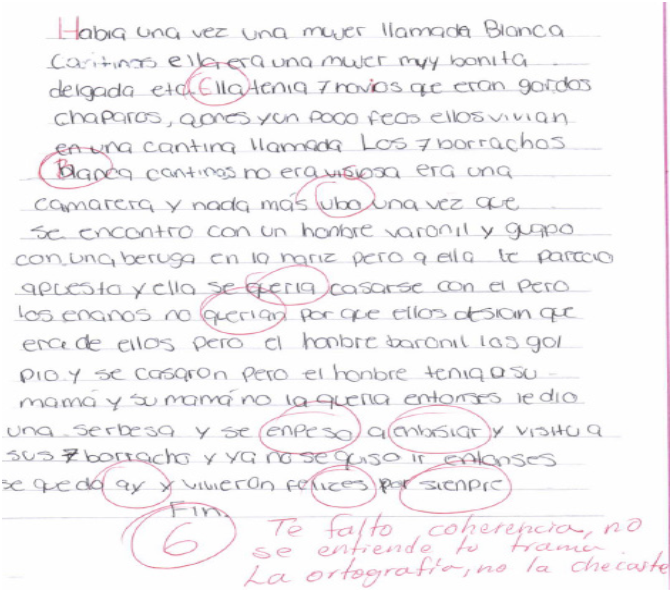 Habia una vez una mujer llamada Blanca
Cantinas ella era una mujer muy bonita
delgada etc. Ella tenia 7 novios qe eran gordos
chaparos, y un poco feos ellos vivian
en una cantina llamada Los 7 borrachos
Blanca cantinas no era visiosa era una
camarera y nada más ubo una vez que
se encontro con un honbre varonil y guapo
con una beruga en la nariz pero a ella le parecio
apuesto y ella se queria casarse con el pero
los enanos no querian por que ellos desian que
era de ellos pero el honbre baronil los gol
pio y se casaron pero el honbre tenia a su
mamá y su mamá no la queria entonses le dio
una serbesa y se enpeso a enbisiar y visitu a
sus 7 borracho y ya no se quiso ir entonses
se quedo ay y vivieron felices por sienpre
Fin.
6 Te falto coherencia, no
se entiende tu trama
La ortografía, no la checaste